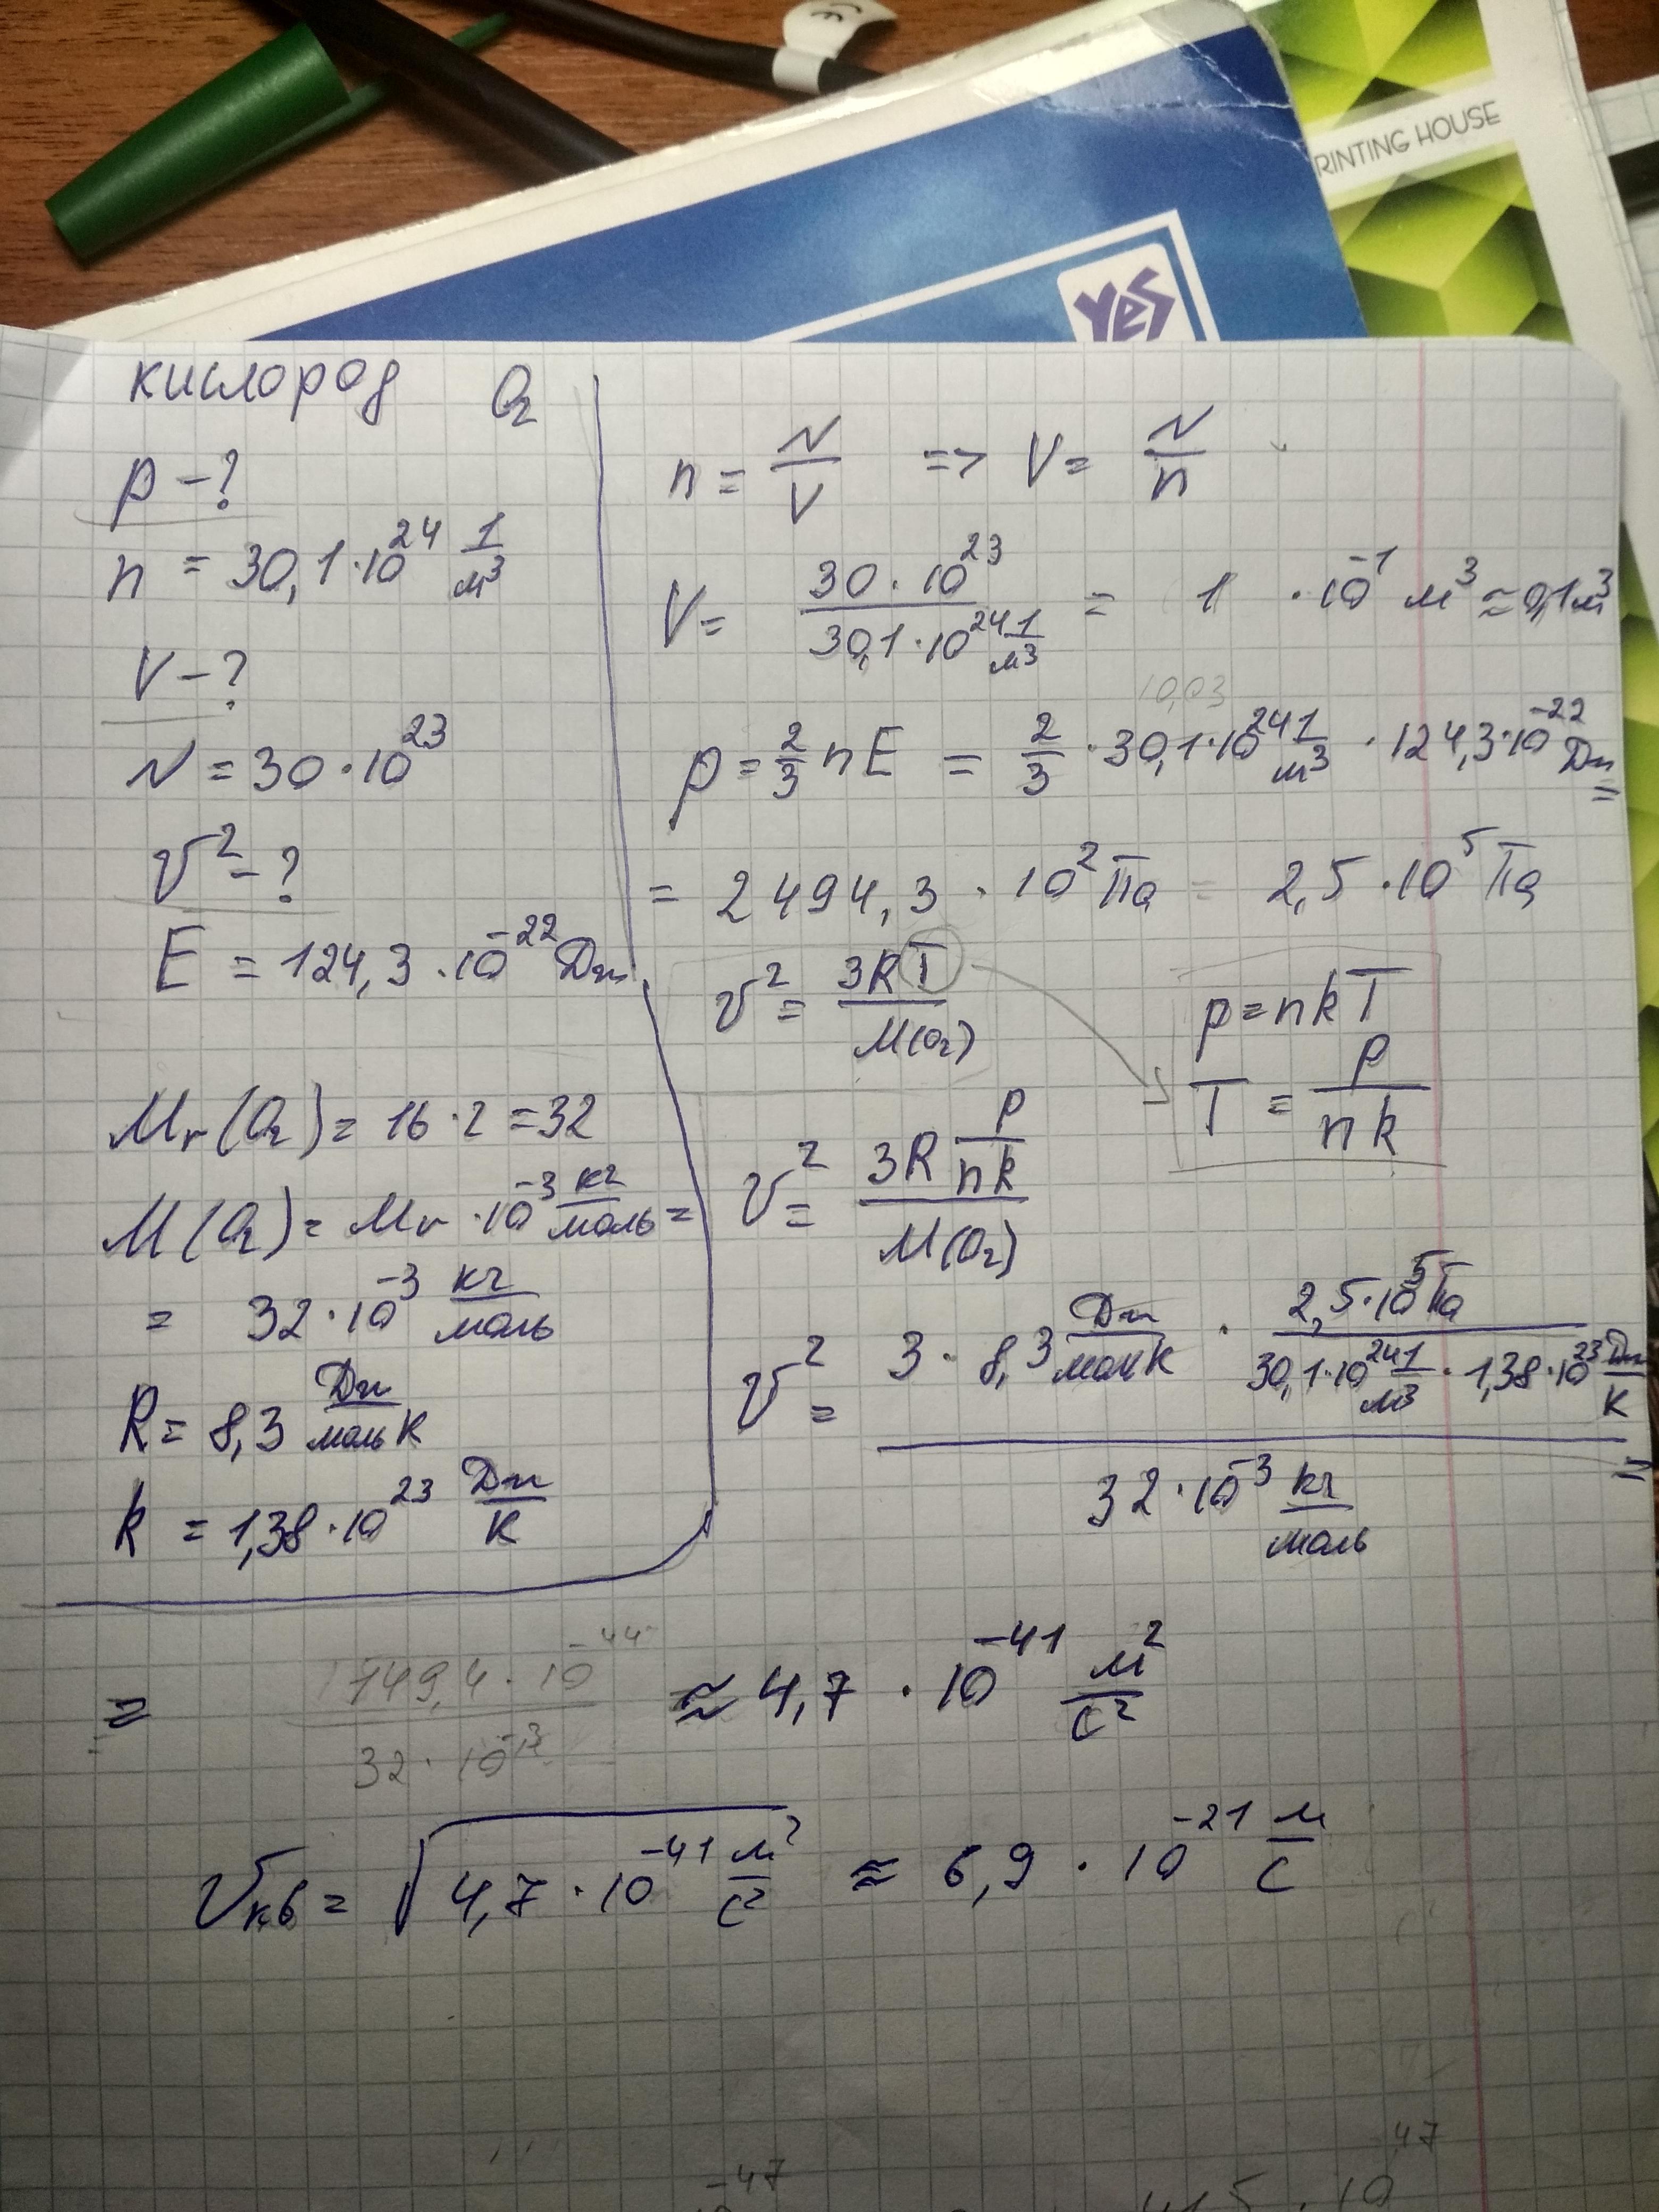 RINTING HOUSE
YES
кислород O₂
p – ?
n = 30,1·10²⁴ 1/м³
V – ?
N = 30·10²³
v² – ?
E = 124,3·10⁻²² Дж
Mr(O₂) = 16·2 = 32
M(O₂) = Mr·10⁻³ кг/моль =
= 32·10⁻³ кг/моль
R = 8,3 Дж/моль К
k = 1,38·10²³ Дж/К
n = N/V => V = N/n
V = 30·10²³ / 30,1·10²⁴ 1/м³ = 1 ·10⁻¹ м³ ≈ 0,1 м³
10,03
p = 2/3 nE = 2/3 · 30,1·10²⁴ 1/м³ · 124,3·10⁻²² Дж =
= 2494,3 · 10² Па = 2,5·10⁵ Па
v² = 3RT / M(O₂)
p = nkT
T = p / nk
v² = 3R p/nk / M(O₂)
v² = 3·8,3 Дж/моль К · 2,5·10⁵ Па / 30,1·10²⁴ 1/м³ · 1,38·10²³ Дж/К / 32·10⁻³ кг/моль =
= 149,4·10⁻⁴⁴ / 32·10⁻³ ≈ 4,7 · 10⁻⁴¹ м²/с²
vкв = √4,7·10⁻⁴¹ м²/с² ≈ 6,9 · 10⁻²¹ м/с